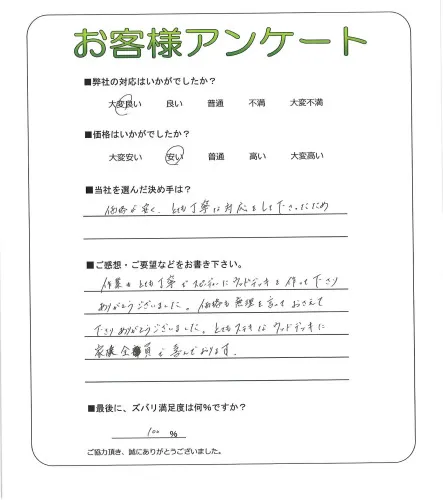 お客様アンケート
■弊社の対応はいかがでしたか？
大変良い 良い 普通 不満 大変不満
■価格はいかがでしたか？
大変安い 安い 普通 高い 大変高い
■当社を選んだ決め手は？
価格が安く、とても丁寧な対応をして下さったため
■ご感想・ご要望などをお書き下さい。
作業もとても丁寧でスピーディーにウッドデッキを作って下さり
ありがとうございました。価格も無理を言っておさえて
下さりありがとうございました。とてもステキなウッドデッキに
家族全員で喜んでおります。
■最後に、ズバリ満足度は何％ですか？
100 ％
ご協力頂き、誠にありがとうございました。